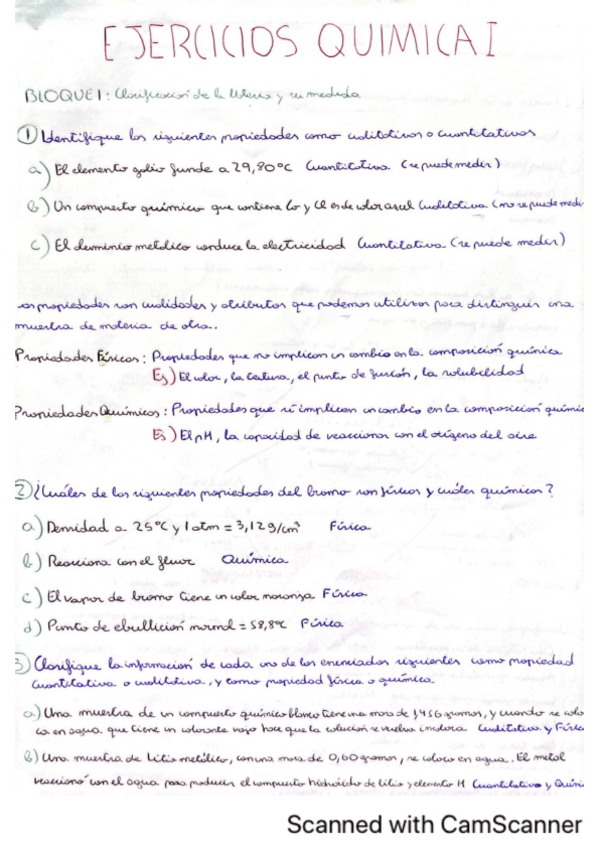 EJERCICIOS QUIMICA I
BLOQUE 1: Clasificación de la Materia y su medida
① Identifique las siguientes propiedades como cualitativas o cuantitativas
a) El elemento galio funde a 29,80ºC Cuantitativa (se puede medir)
b) Un compuesto químico que contiene Co y Cl es de color azul Cualitativa (no se puede medi
c) El aluminio metálico conduce la electricidad Cuantitativa (se puede medir)
as propiedades son cualidades y atributos que podemos utilizar para distinguir una
muestra de materia de otra..
Propiedades Físicas: Propiedades que no implican un cambio en la composición química
Ej) El color, la textura, el punto de fusión, la solubilidad
Propiedades Químicas: Propiedades que sí implican un cambio en la composición químic
Ej) El pH, la capacidad de reaccionar con el oxígeno del aire
② ¿Cuáles de las siguientes propiedades del bromo son físicas y cuáles químicas?
a) Densidad a 25ºC y 1 atm = 3,12 g/cm³ Física
b) Reacciona con el fluor Química
c) El vapor de bromo tiene un color naranja Física
d) Punto de ebullición normal = 58,8ºC Física
③ Clasifique la información de cada uno de los enunciados siguientes como propiedad
cuantitativa o cualitativa, y como propiedad física o química.
a) Una muestra de un compuesto químico blanco tiene una masa de gramos, y cuando se colo
ca en agua que tiene un colorante rojo hace que la solución se vuelva incolora Cualitativa y Físic
b) Una muestra de Litio metálico, con una masa de 0,60 gramos, se coloca en agua. El metal
reacciona con el agua para producir el compuesto hidróxido de litio y elemento H Cuantitativa y Quími
Scanned with CamScanner